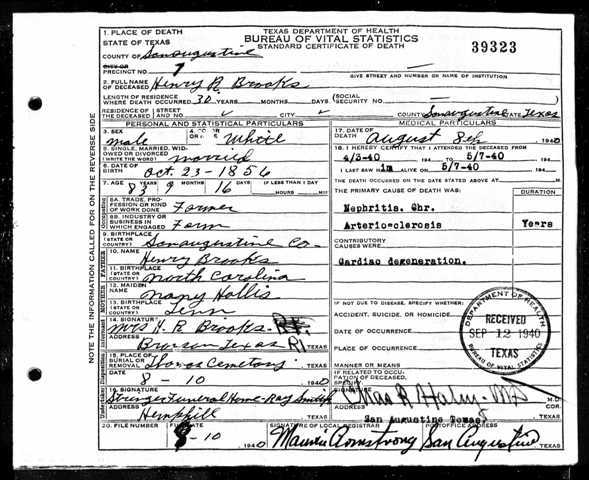 TEXAS DEPARTMENT OF HEALTH
BUREAU OF VITAL STATISTICS
STANDARD CERTIFICATE OF DEATH
39323
1. PLACE OF DEATH
STATE OF TEXAS
COUNTY OF San Augustine
CITY OR
PRECINCT NO. 7
GIVE STREET AND NUMBER OR NAME OF INSTITUTION
2. FULL NAME
OF DECEASED Henry R. Brooks
LENGTH OF RESIDENCE
WHERE DEATH OCCURRED 30 YEARS MONTHS DAYS
(SOCIAL
SECURITY NO.
RESIDENCE OF
THE DECEASED
STREET
AND NO.
CITY
COUNTY San Augustine STATE Texas
PERSONAL AND STATISTICAL PARTICULARS
3. SEX male
4. COLOR OR White
5. SINGLE, MARRIED, WIDOWED OR DIVORCED
(WRITE THE WORD) married
6. DATE OF
BIRTH Oct. 23-1856
7. AGE 83 YEARS 9 MONTHS 16 DAYS IF LESS THAN 1 DAY
HOURS MIN
8A. TRADE, PROFESSION OR KIND
OF WORK DONE Farmer
8B. INDUSTRY OR
BUSINESS IN
WHICH ENGAGED Farm
9. BIRTHPLACE
(STATE OR
COUNTRY) San augustine Co-
10. NAME Henry Brooks
11. BIRTHPLACE
(STATE OR
COUNTRY) North Carolina
12. MAIDEN
NAME Nancy Hollis
13. BIRTHPLACE
(STATE OR
COUNTRY) Tenn
14. SIGNATURE Mrs H. R. Brooks-
ADDRESS Bronson Texas R1 TEXAS
15. PLACE OF
BURIAL OR
REMOVAL Thomas Cemetary
DATE 8-10 1940
16. SIGNATURE Stringer Funeral Home-Ray
ADDRESS Hemphill TEXAS
20. FILE NUMBER
FILE DATE 8-10 1940
MEDICAL PARTICULARS
17. DATE OF
DEATH August 8th 1940
18. I HEREBY CERTIFY THAT I ATTENDED THE DECEASED FROM
4/3-40 194 TO 5/7-40 194
I LAST SAW h im ALIVE ON 5/7-40 194
THE DEATH OCCURRED ON THE DATE STATED ABOVE AT M.
THE PRIMARY CAUSE OF DEATH WAS:
DURATION
Nephritis. Chr.
Arteriosclerosis
Years
CONTRIBUTORY
CAUSES WERE:
Cardiac degeneration.
IF NOT DUE TO DISEASE, SPECIFY WHETHER:
ACCIDENT, SUICIDE, OR HOMICIDE
DATE OF OCCURRENCE
PLACE OF OCCURRENCE
MANNER OR MEANS
IF RELATED TO OCCUPATION
OF DECEASED, SPECIFY
M.D.
San Augustine Texas
ADDRESS TEXAS
SIGNATURE OF LOCAL REGISTRAR
POSTOFFICE ADDRESS
Armstrong San Augustine
DEPARTMENT OF HEALTH
RECEIVED
SEP 12 1940
TEXAS
BUREAU OF VITAL STATISTICS
NOTE THE INFORMATION CALLED FOR ON THE REVERSE SIDE